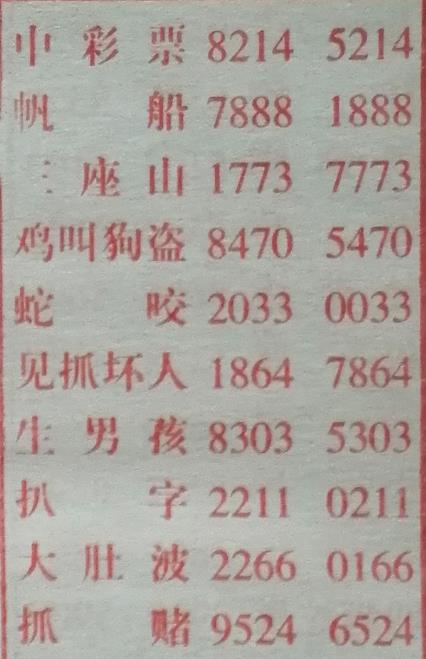 中彩票 8214 5214
帆船 7888 1888
三座山 1773 7773
鸡叫狗盗 8470 5470
蛇咬 2033 0033
见抓坏人 1864 7864
生男孩 8303 5303
扒字 2211 0211
大肚波 2266 0166
抓赌 9524 6524